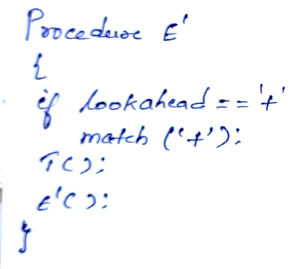 Procedure E'
{
if lookahead == '+'
match ('+');
T();
E'();
}